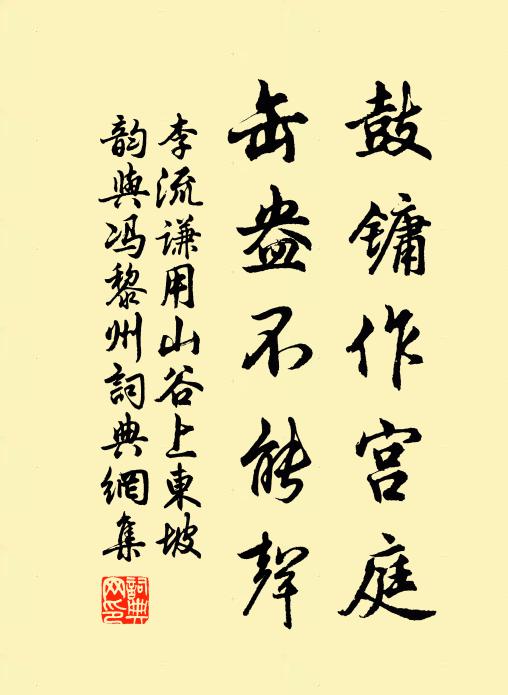 鼓镛作宫庭
缶盎不能聲
李流谦用山谷上東坡
韵與冯黎州詞典網集